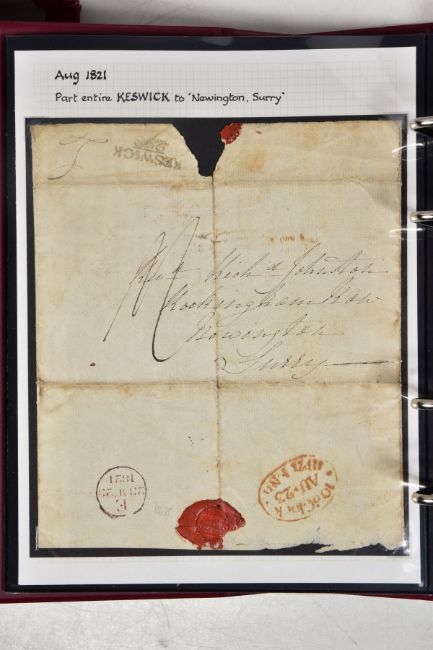 Aug 1821
Part entire KESWICK to 'Newington, Surry'
KESWICK
298
Richd Johnston
Rockingham Row
Newington
Surry
E
23 AU 23
1821
10 o'Clock
AU. 23
1821 F.Nn